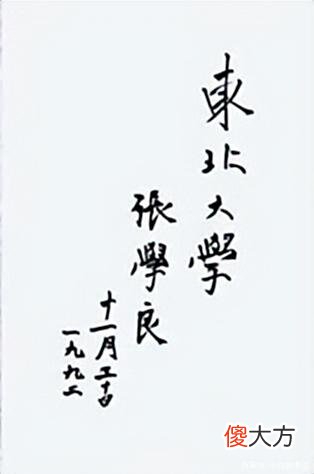 東北大學
張學良
十一月
一九九二
傻大方